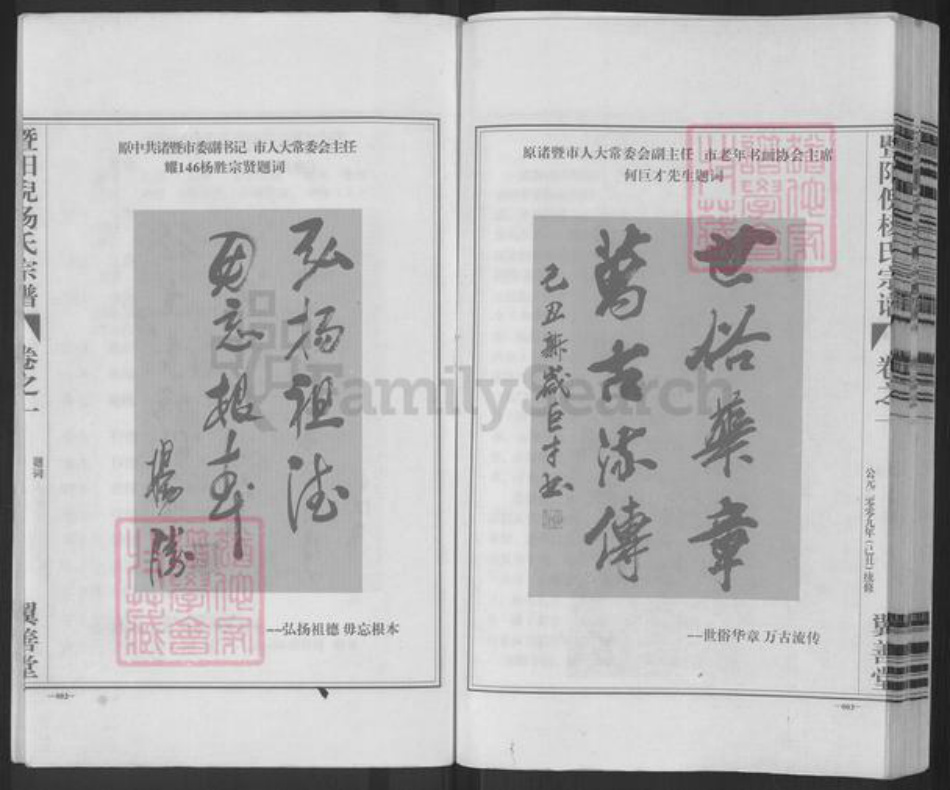 暨阳倪杨氏宗谱
卷之一
题词
翼善堂
原中共诸暨市委副书记 市人大常委会主任
耀146杨胜宗贤题词
弘扬祖德
毋忘根本
楊勝
---弘扬祖德 毋忘根本
—002—
原诸暨市人大常委会副主任 市老年书画协会主席
何巨才先生题词
世俗華章
萬古流傳
己丑新歲巨才书
---世俗华章 万古流传
暨阳倪杨氏宗谱
卷之一
公元二零零九年(己丑)续修
翼善堂
—003—
FamilySearch